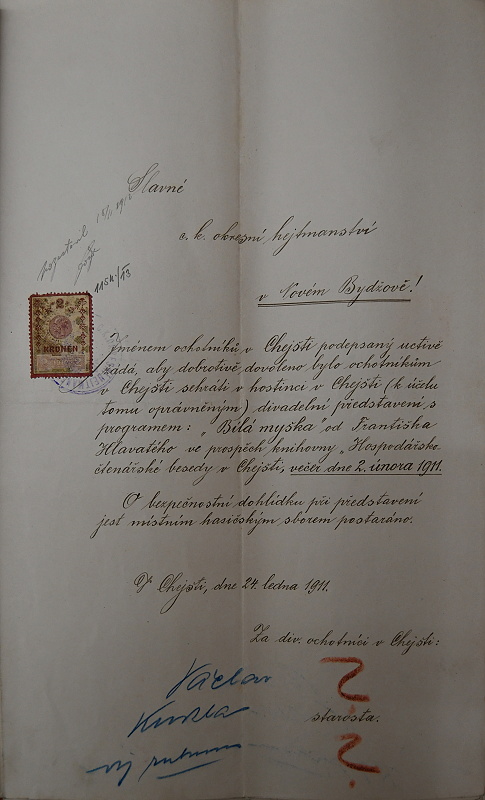 Slavné
c. k. okresní hejtmanství
v Novém Bydžově!
1911
1154/13
KRONEN
Jménem ochotníků v Chejšti podepsaný uctivě
žádá, aby dobrotivě dovoleno bylo ochotníkům
v Chejšti sehráti v hostinci v Chejšti (k účelu
tomu oprávněným) divadelní představení s
programem: „Bílá myška" od Františka
Hlavatého ve prospěch knihovny „Hospodářsko-
čtenářské besedy v Chejšti, večer dne 2. února 1911.
O bezpečnostní dohlídku při představení
jest místním hasičským sborem postaráno.
V Chejšti, dne 24. ledna 1911.
Za div. ochotníci v Chejšti:
Václav
starosta.